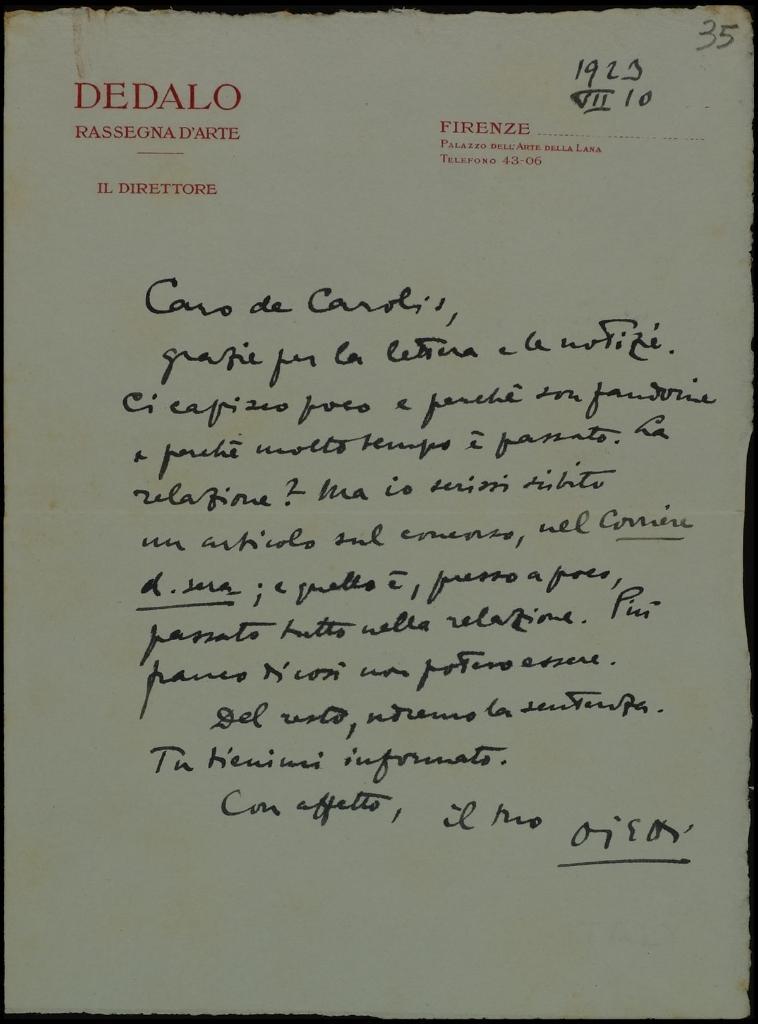 35
1923
VII 10
DEDALO
RASSEGNA D'ARTE
IL DIRETTORE
FIRENZE
PALAZZO DELL'ARTE DELLA LANA
TELEFONO 43-06
Caro de Carolis,
grazie per la lettera e le notizie.
Ci capisco poco e perché son fandonie
e perché molto tempo è passato. La
relazione? Ma io scrissi subito
un articolo sul concorso, nel Corriere
d. sera; e quello è, presso a poco,
passato tutto nella relazione. Più
franco di così non potevo essere.
Del resto, udremo la sentenza.
Tu tienimi informato.
Con affetto, il tuo Ojetti